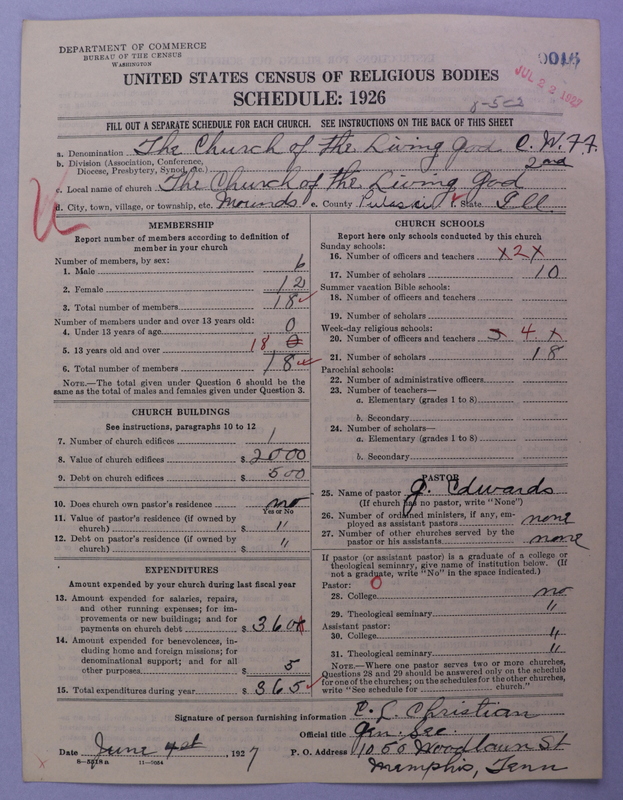 DEPARTMENT OF COMMERCE
BUREAU OF THE CENSUS
WASHINGTON
0016
JUL 22 1927
UNITED STATES CENSUS OF RELIGIOUS BODIES
SCHEDULE: 1926
8-502
FILL OUT A SEPARATE SCHEDULE FOR EACH CHURCH. SEE INSTRUCTIONS ON THE BACK OF THIS SHEET
a. Denomination The Church of the Living God C. W. F. F.
b. Division (Association, Conference, Diocese, Presbytery, Synod, etc.) 2nd
c. Local name of church The Church of the Living God
d. City, town, village, or township, etc. Mounds e. County Pulaski f. State Ill
MEMBERSHIP
Report number of members according to definition of member in your church
Number of members, by sex:
1. Male 6
2. Female 12
3. Total number of members 18
Number of members under and over 13 years old:
4. Under 13 years of age 0
5. 13 years old and over 18 0
6. Total number of members 18
NOTE.—The total given under Question 6 should be the same as the total of males and females given under Question 3.
CHURCH BUILDINGS
See instructions, paragraphs 10 to 12
7. Number of church edifices 1
8. Value of church edifices $ 2000
9. Debt on church edifices $ 500
10. Does church own pastor's residence no
Yes or No
11. Value of pastor's residence (if owned by church) $ "
12. Debt on pastor's residence (if owned by church) $ "
EXPENDITURES
Amount expended by your church during last fiscal year
13. Amount expended for salaries, repairs, and other running expenses; for improvements or new buildings; and for payments on church debt $ 360
14. Amount expended for benevolences, including home and foreign missions; for denominational support; and for all other purposes $ 5
15. Total expenditures during year $ 365
CHURCH SCHOOLS
Report here only schools conducted by this church
Sunday schools:
16. Number of officers and teachers x 2 x
17. Number of scholars 10
Summer vacation Bible schools:
18. Number of officers and teachers
19. Number of scholars
Week-day religious schools:
20. Number of officers and teachers 4 x
21. Number of scholars 18
Parochial schools:
22. Number of administrative officers
23. Number of teachers—
a. Elementary (grades 1 to 8)
b. Secondary
24. Number of scholars—
a. Elementary (grades 1 to 8)
b. Secondary
PASTOR
25. Name of pastor J. Edwards
(If church has no pastor, write "None")
26. Number of ordained ministers, if any, employed as assistant pastors none
27. Number of other churches served by the pastor or his assistants none
If pastor (or assistant pastor) is a graduate of a college or theological seminary, give name of institution below. (If not a graduate, write "No" in the space indicated.)
Pastor: 0
28. College no
29. Theological seminary "
Assistant pastor:
30. College "
31. Theological seminary "
NOTE.—Where one pastor serves two or more churches, Questions 28 and 29 should be answered only on the schedule for one of the churches; on the schedules for the other churches, write "See schedule for church."
Signature of person furnishing information C. L. Christian
Official title Gen. Sec.
Date June 4st 1927 P. O. Address 1050 Woodlawn St
Memphis, Tenn
11—9054